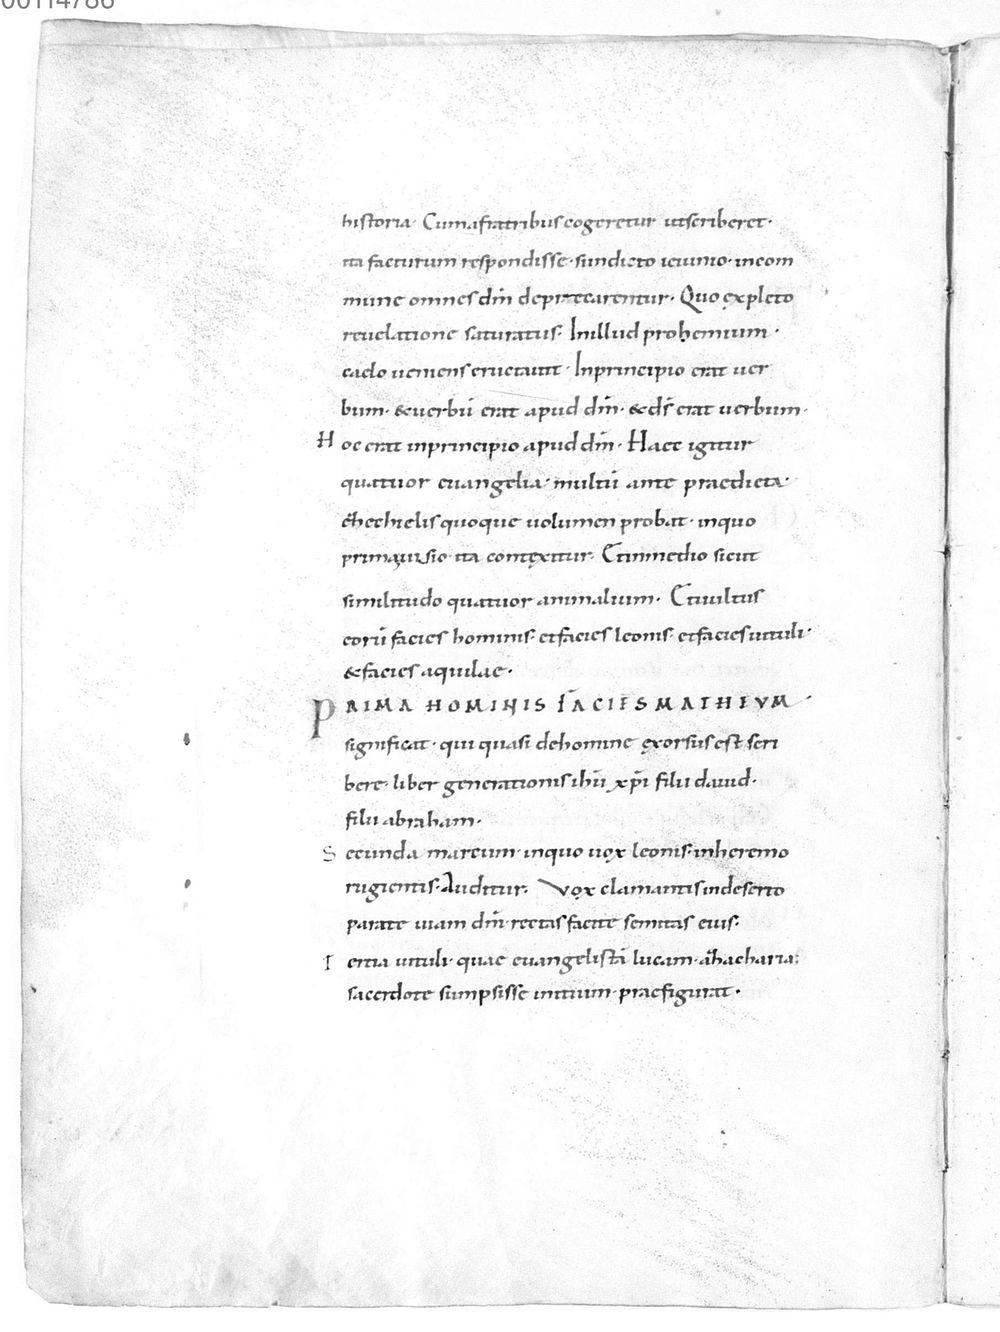 00114786
historia· Cumafratribus cogeretur utscriberet·
ita facturum respondisse· siindicto ieiunio· incom
mune omnes dm̄ depręcarentur· Quo expleto
reuelatione saturatus· Inillud prohemium·
caelo ueniens eructauit· Inprincipio erat uer
bum· &uerbū erat apud dm̄· &ds̄ erat uerbum·
Hoc erat inprincipio apud dm̄· Haec igitur
quatuor euangelia· multū ante praedicta·
ęhechielis quoque uolumen probat· inquo
prima uisio ita contexitur· Etinmedio sicut
similitudo quatuor animalium· Etuultus
eorū facies hominis· etfacies leonis· etfacies uituli·
&facies aquilae·
PRIMA HOMINIS FACIES MATHEUM·
significat· qui quasi dehomine exorsus est scri
bere· liber generationis ihū xp̄i filii dauid·
filii abraham·
Secunda marcum· inquo uox leonis· inheremo
rugientis· Auditur· Vox clamantis indeserto
parate uiam dm̄· rectas facite semitas eius·
Tertia uituli· quae euangelistā lucam· ahacharia·
sacerdote sumpsisse initium· praefigurat·